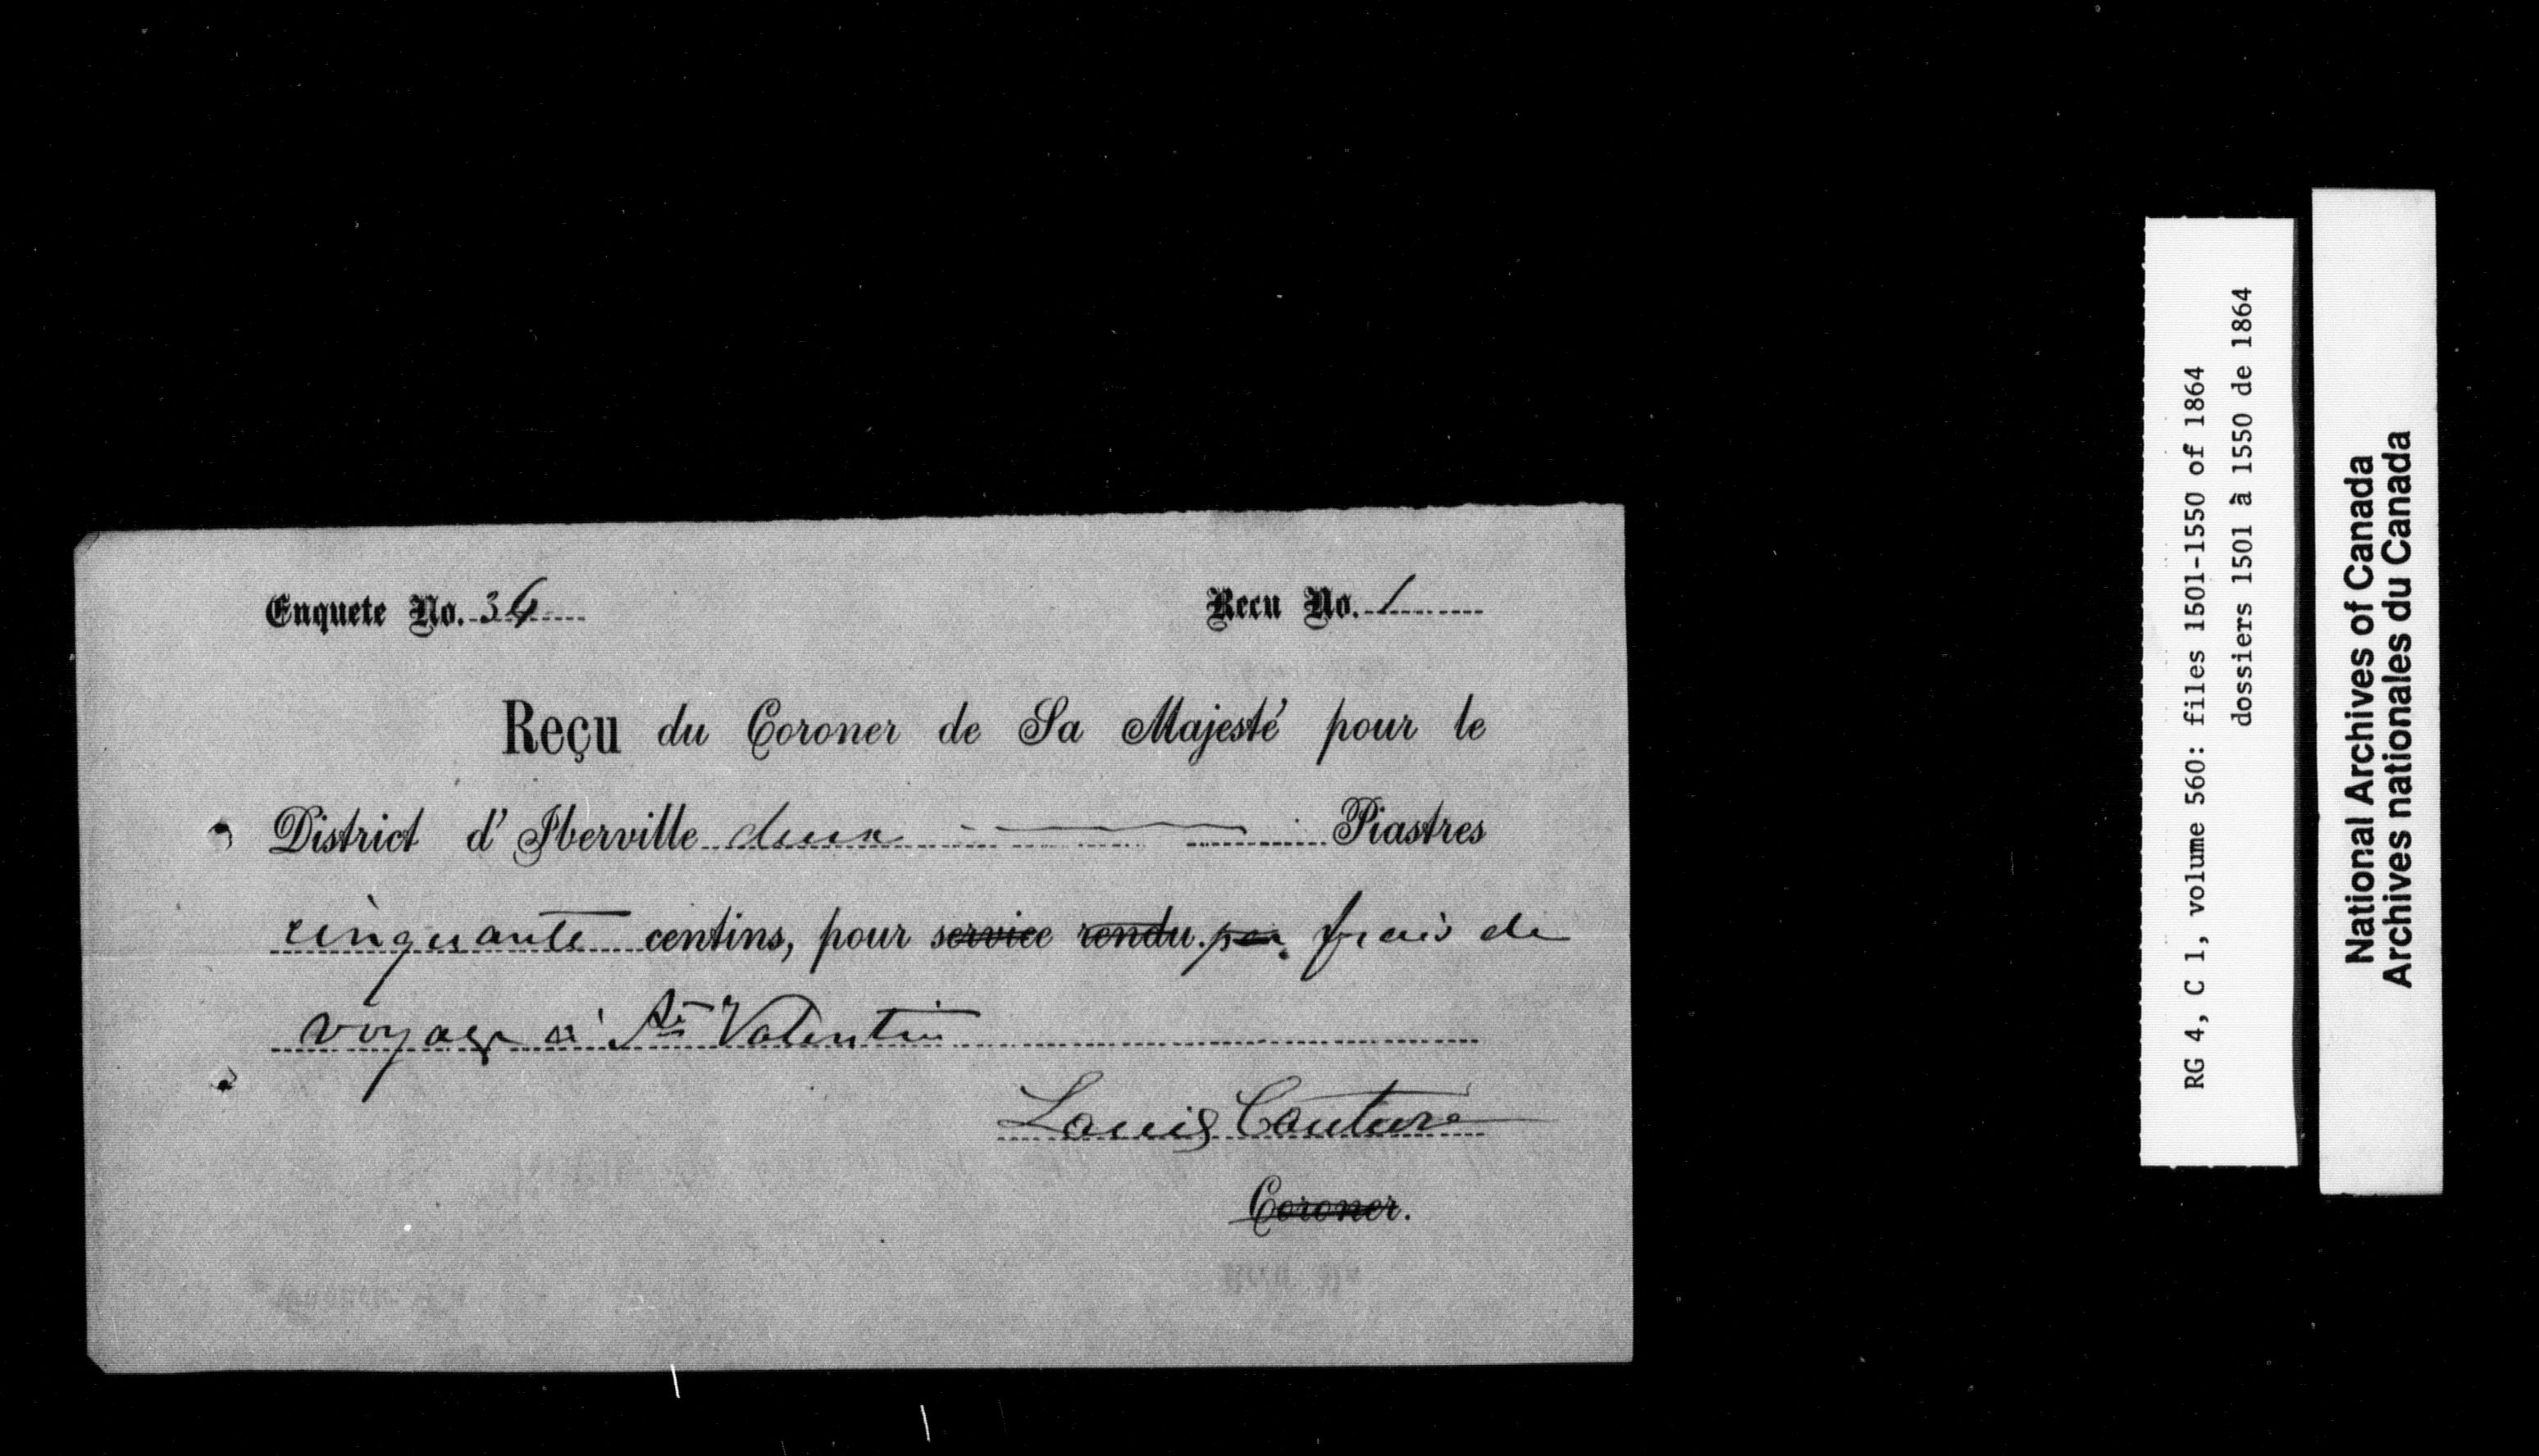 Enquete No. 34 Recu No. 1
Reçu du Coroner de Sa Majesté pour le
District d' Iberville deux Piastres
cinquante centins, pour service rendu par frais de
voyage à St Valentin
Louis Couture
Coroner.
RG 4, C 1, volume 560: files 1501-1550 of 1864
dossiers 1501 à 1550 de 1864
National Archives of Canada
Archives nationales du Canada